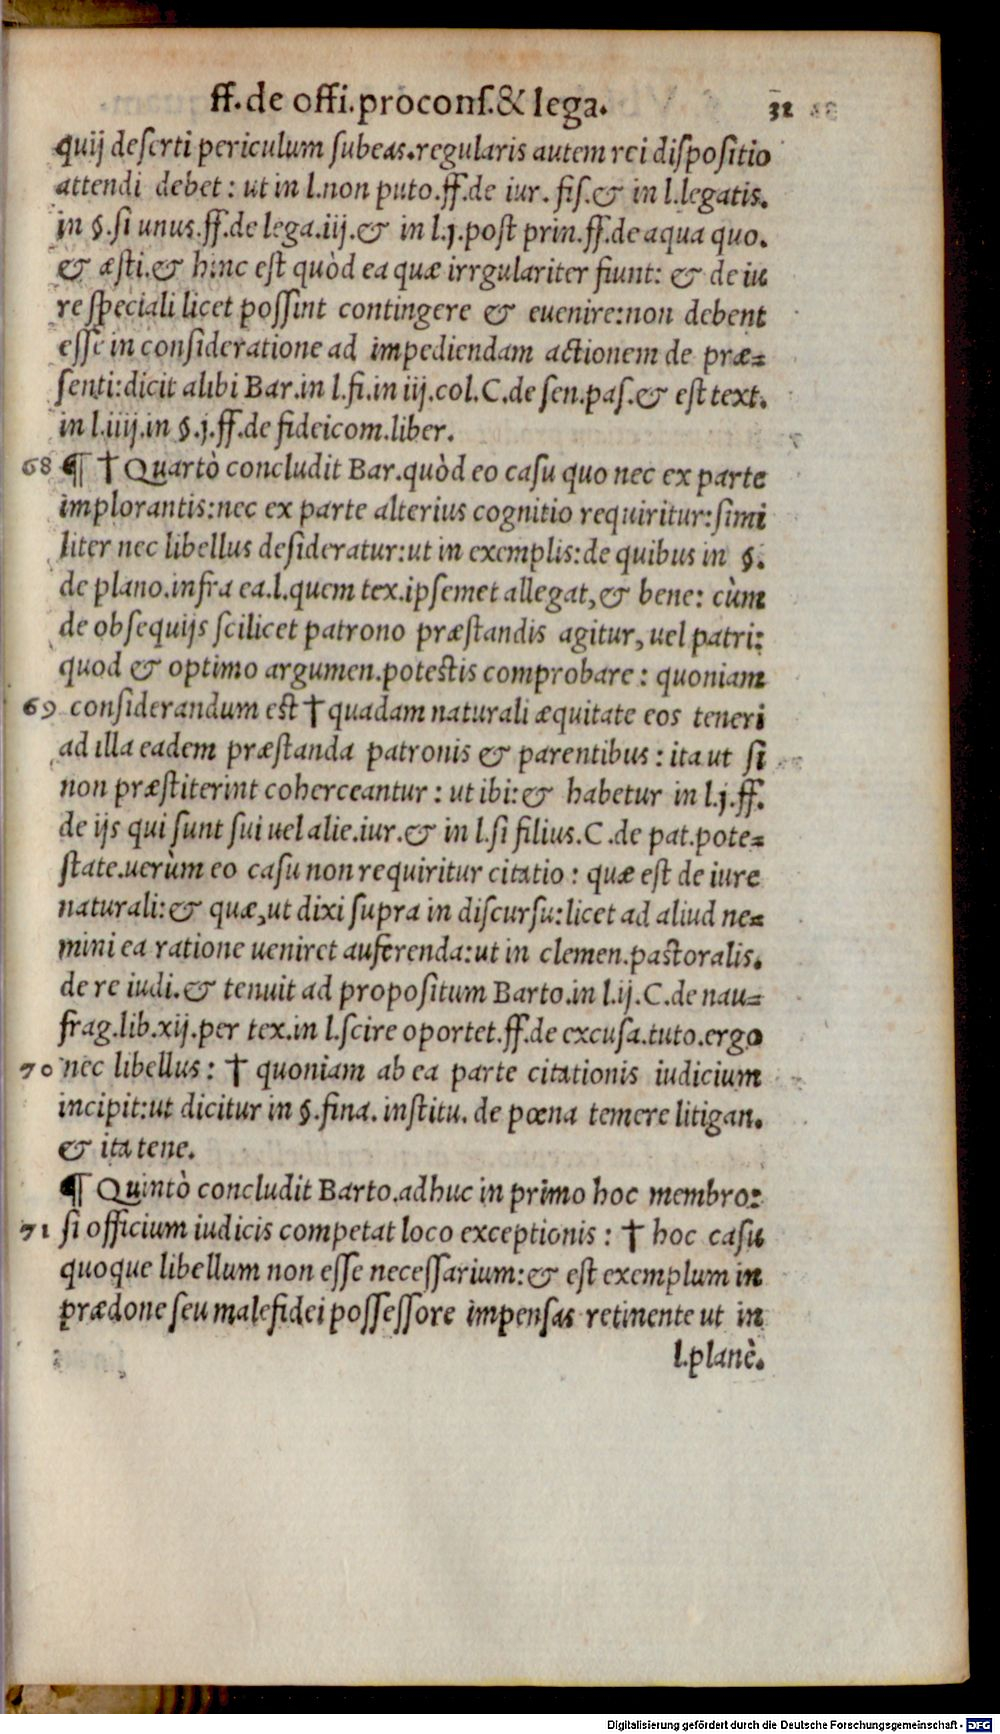 ff.de offi.procons.& lega. 32
quij deserti periculum subeas.regularis autem rei dispositio
attendi debet: ut in l.non puto.ff.de iur. fis.& in l.legatis.
in §.si unus.ff.de lega.iij.& in l.j.post prin.ff.de aqua quo.
& æsti.& hinc est quòd ea quæ irrgulariter fiunt: & de iu
re speciali licet possint contingere & euenire:non debent
esse in consideratione ad impediendam actionem de præ=
senti:dicit alibi Bar.in l.fi.in iij.col.C.de sen.pas.& est text.
in l.iiij.in §.j.ff.de fideicom.liber.
68 ¶ † Quartò concludit Bar.quòd eo casu quo nec ex parte
implorantis:nec ex parte alterius cognitio requiritur:simi
liter nec libellus desideratur:ut in exemplis:de quibus in §.
de plano.infra ea.l.quem tex.ipsemet allegat,& bene: cùm
de obsequijs scilicet patrono præstandis agitur, uel patri:
quod & optimo argumen.potestis comprobare: quoniam
69 considerandum est † quadam naturali æquitate eos teneri
ad illa eadem præstanda patronis & parentibus: ita ut si
non præstiterint coherceantur: ut ibi:& habetur in l.j.ff.
de ijs qui sunt sui uel alie.iur.& in l.si filius.C.de pat.pote=
state.uerùm eo casu non requiritur citatio: quæ est de iure
naturali:& quæ,ut dixi supra in discursu:licet ad aliud ne=
mini ea ratione ueniret auferenda:ut in clemen.pastoralis.
de re iudi.& tenuit ad propositum Barto.in l.ij.C.de nau=
frag.lib.xij.per tex.in l.scire oportet.ff.de excusa.tuto.ergo
70 nec libellus: † quoniam ab ea parte citationis iudicium
incipit:ut dicitur in §.fina. institu. de pœna temere litigan.
& ita tene.
¶ Quintò concludit Barto.adhuc in primo hoc membro:
71 si officium iudicis competat loco exceptionis: † hoc casu
quoque libellum non esse necessarium:& est exemplum in
prædone seu malefidei possessore impensas retinente ut in
l.planè.
Digitalisierung gefördert durch die Deutsche Forschungsgemeinschaft - DFG